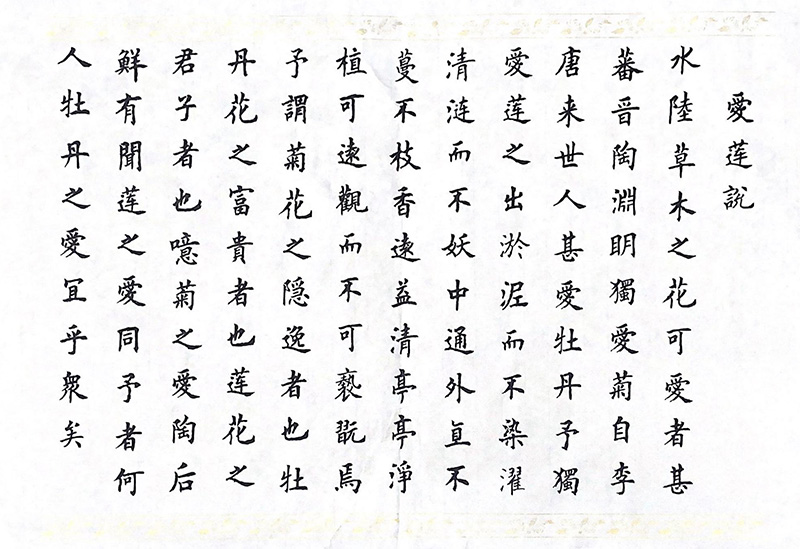 愛莲説
水陸草木之花可愛者甚
蕃晋陶淵明獨愛菊自李
唐来世人甚愛牡丹予獨
愛莲之出淤泥而不染濯
清涟而不妖中通外直不
蔓不枝香遠益清亭亭淨
植可遠觀而不可褻翫焉
予謂菊花之隠逸者也牡
丹花之富貴者也莲花之
君子者也噫菊之愛陶后
鮮有聞莲之愛同予者何
人牡丹之愛宜乎衆矣